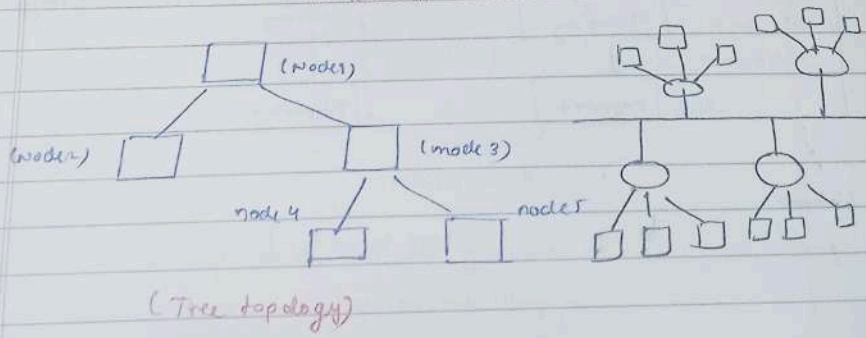 (Node1)
(Node2)
(node 3)
node 4
node5
(Tree topology)